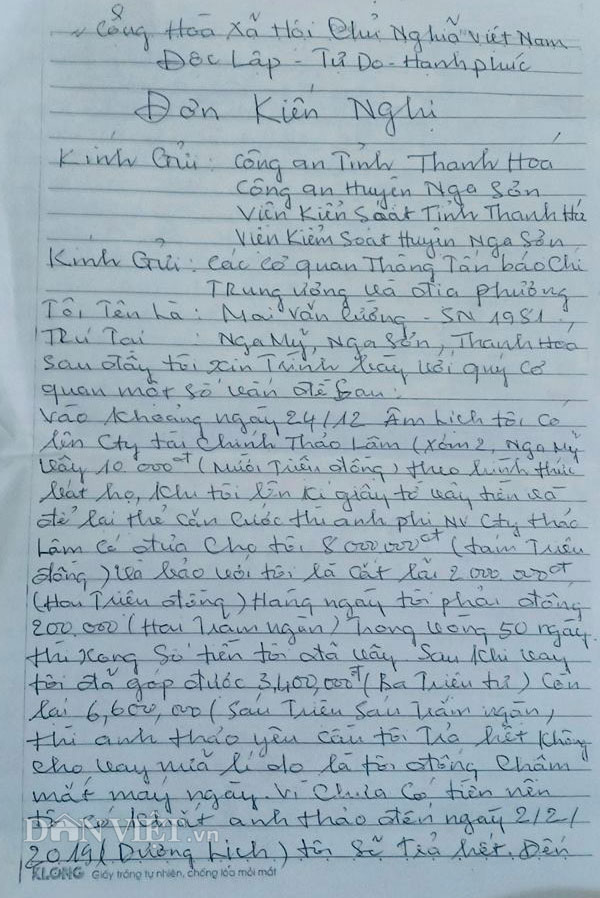 Cộng Hoà Xã Hội Chủ Nghĩa Việt Nam
Độc Lập - Tự Do - Hạnh phúc
Đơn Kiến Nghị
Kính Gửi : Công an Tỉnh Thanh Hoá
Công an Huyện Nga Sơn
Viện Kiểm Soát Tỉnh Thanh Hoá
Viện Kiểm Soát Huyện Nga Sơn
Kính Gửi : Các cơ quan Thông Tấn báo Chí
Trung ương và địa phương
Tôi Tên Là : Mai Văn Cường - SN 1981
Trú Tại : Nga Mỹ, Nga Sơn, Thanh Hoá
Sau đây tôi xin Trình bày với quý cơ
quan một số vấn đề sau:
Vào khoảng ngày 24/12 Âm Lịch tôi có
lên Cty tài Chính Thảo Lâm (Xóm 2, Nga Mỹ
vay 10 000đ (Mười Triệu đồng) theo hình thức
bát họ, Khi tôi lên kí giấy tờ vay tiền và
để lại thẻ căn cước thì anh phi NV Cty thảo
Lâm có đưa Cho tôi 8 000.000đ (tám Triệu
đồng) và bảo với tôi là cắt lãi 2 000.000đ
(Hai Triệu đồng) Hàng ngày tôi phải đóng
200.000 (Hai Trăm ngàn) Trong vòng 50 ngày.
thì Xong Số tiền tôi đã vay Sau Khi vay
tôi đã góp được 3,400,000đ (Ba Triệu tư) Còn
lại 6,600,000 (Sáu Triệu Sáu Trăm ngàn,
thì anh thảo yêu cầu tôi Trả hết Không
cho vay nữa lí do là tôi đóng Chậm
mất mấy ngày. Vì Chưa Có tiền nên
tôi có anh thảo đến ngày 2/2/
2019 (Dương Lịch) tôi Sẽ Trả hết. Đến
DÂNVIỆT.vn
KLONG Giấy trắng tự nhiên, chống lóa mỏi mắt